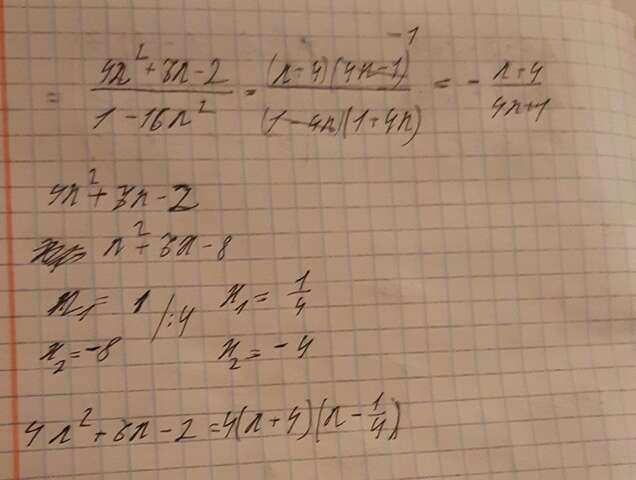 -1
= (4x² + 3x - 2)/(1 - 16x²) = ((x + 4)(4x - 1))/((1 - 4x)(1 + 4x)) = - (x + 4)/(4x + 1)
4x² + 3x - 2
x² + 3x - 8
x₁ = 1 /:4 x₁ = 1/4
x₂ = -8 x₂ = -4
4x² + 3x - 2 = 4(x + 4)(x - 1/4)